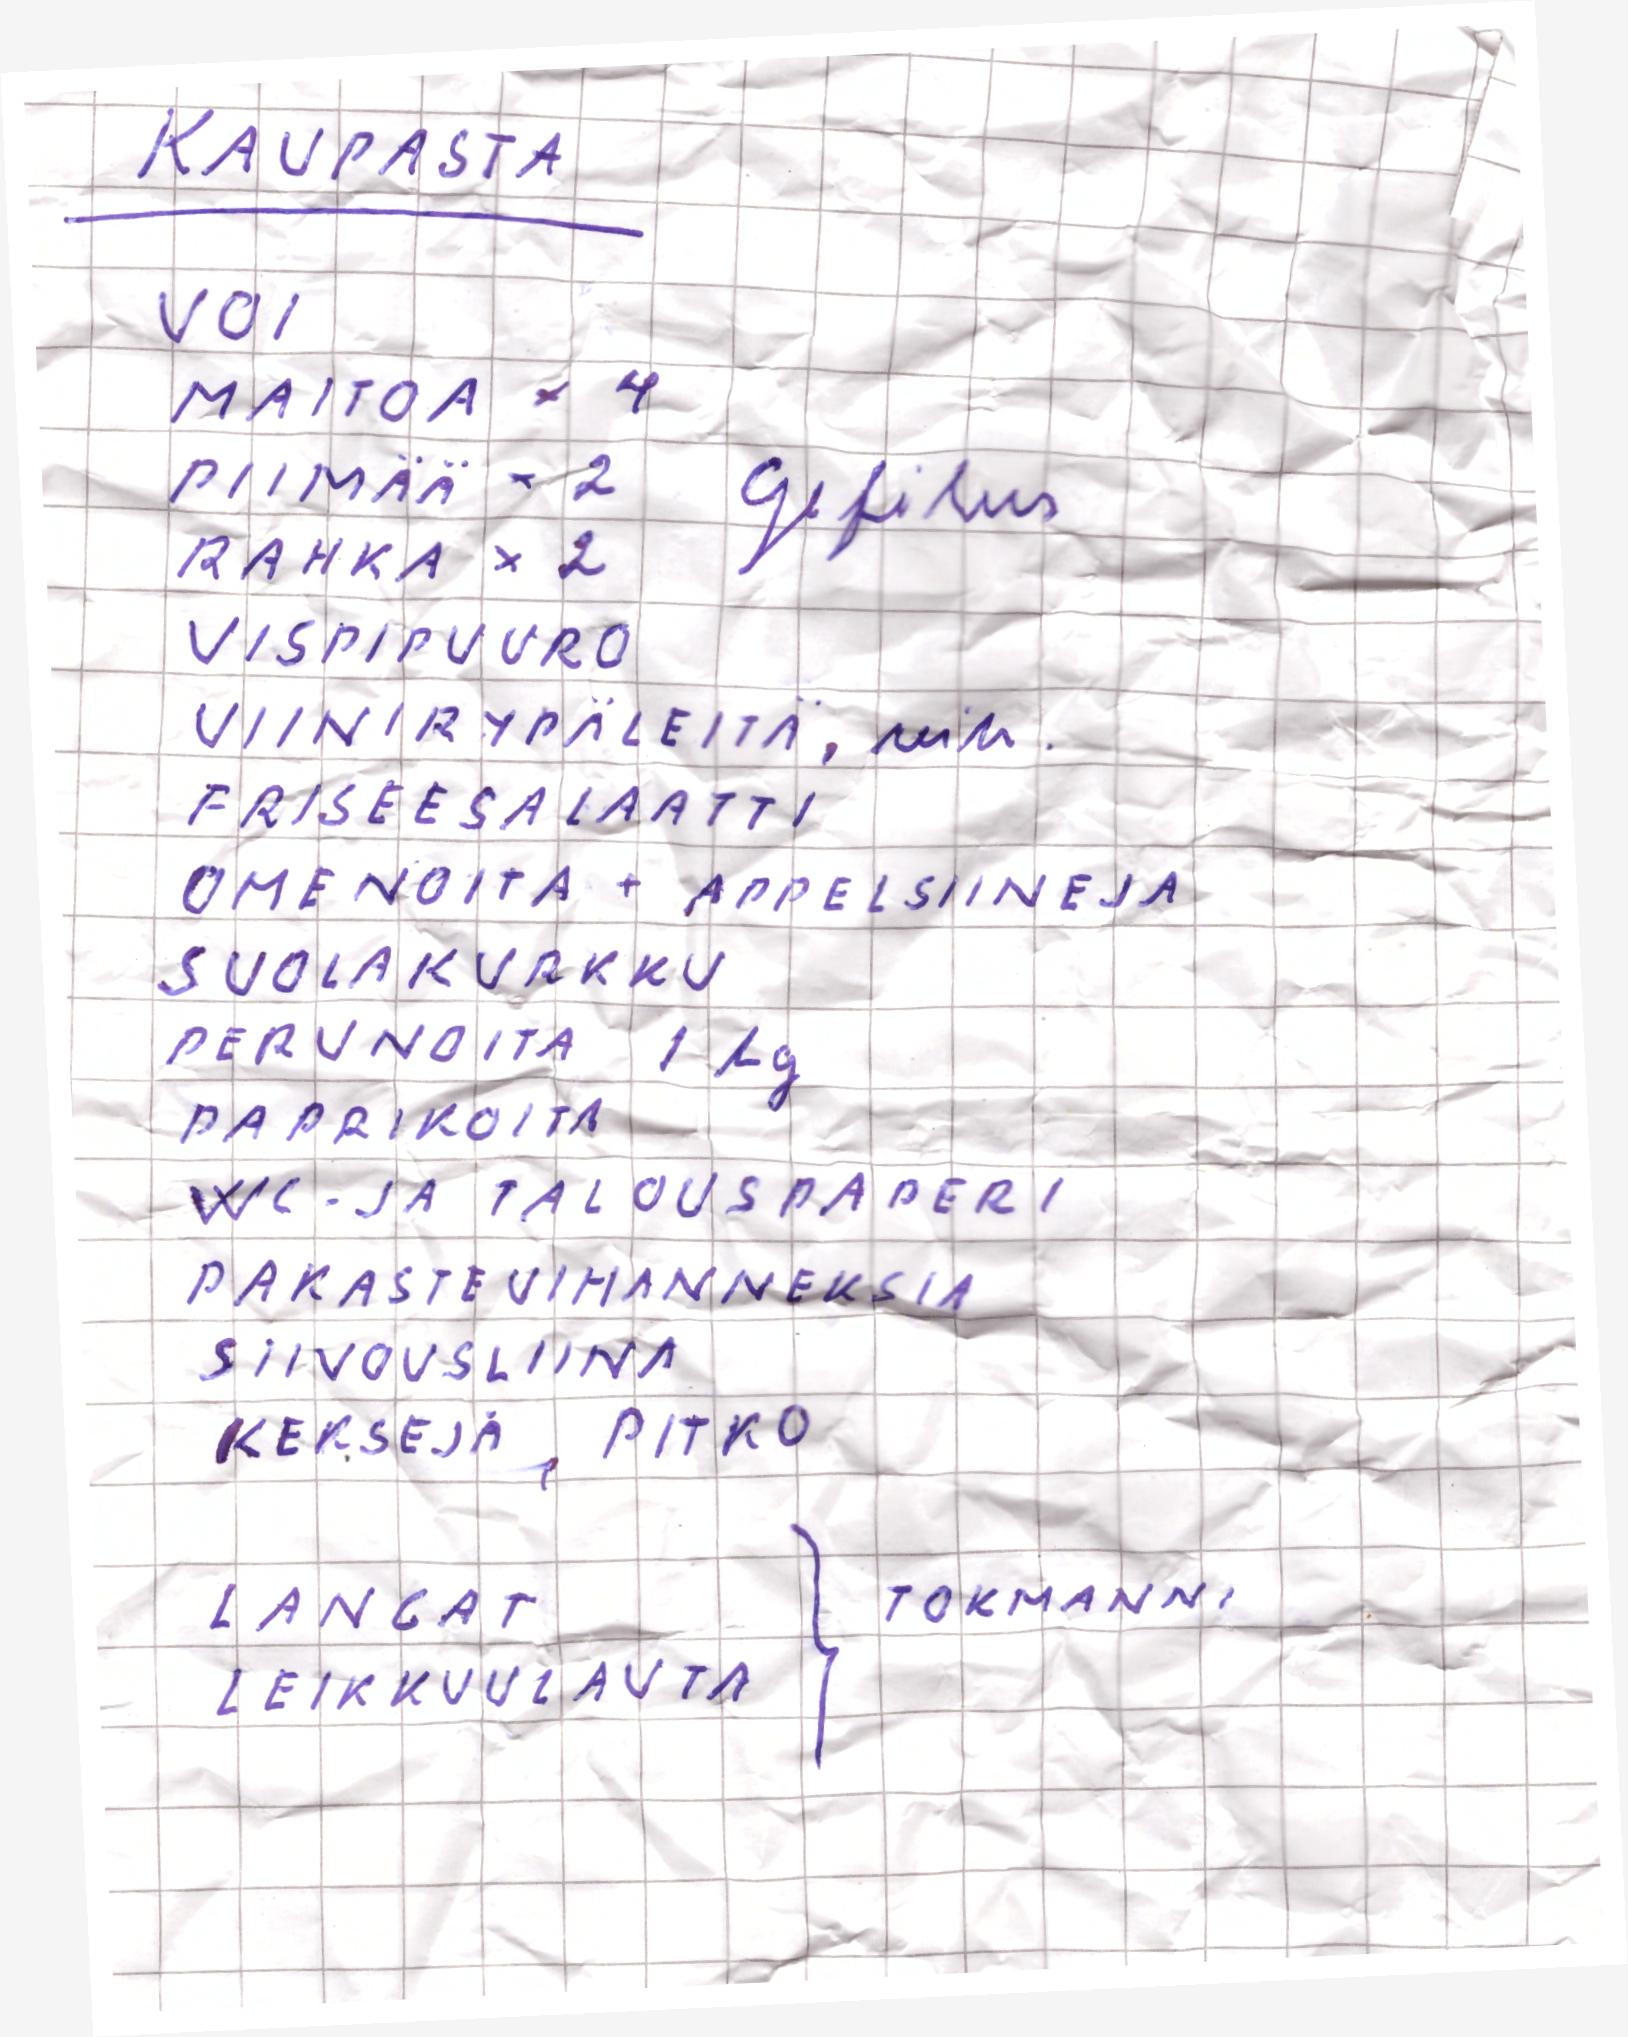 KAUPASTA
VOI
MAITOA × 4
PIIMÄÄ × 2 Gefilus
RAHKA × 2
VISPIPUURO
VIINIRYPÄLEITÄ,
FRISEESALAATTI
OMENOITA + APPELSIINEJA
SUOLAKURKKU
PERUNOITA 1 kg
PAPRIKOITA
WC-JA TALOUSPAPERI
PAKASTEVIHANNEKSIA
SIIVOUSLIINA
KEKSEJÄ, PITKO
LANGAT } TOKMANNI
LEIKKUULAUTA